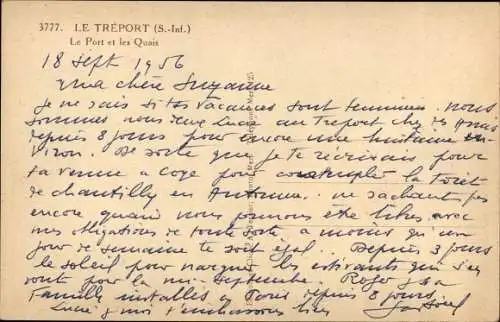 3777. LE TRÉPORT (S.-Inf.)
Le Port et les Quais
18 Sept 1956
Ma chère Suzanne
Je ne sais si tes vacances sont terminées. nous
sommes nous deux Lucie au Tréport chez des amis
depuis 8 jours pour encore une huitaine en-
viron. De sorte que je te récrirais pour
ta venue à Coye pour contempler la forêt
de Chantilly en Automne. ne sachant pas
encore quand nous pourrons être libres avec
mes obligations de toute sorte à moins qu'un
jour de semaine te soit égal. Depuis 3 jours
le soleil pour narguer les estivants qui s'en
vont pour la mi-Septembre. Roger
famille installés à Paris depuis 8 jours.
Lucie & moi t'embrassons bien